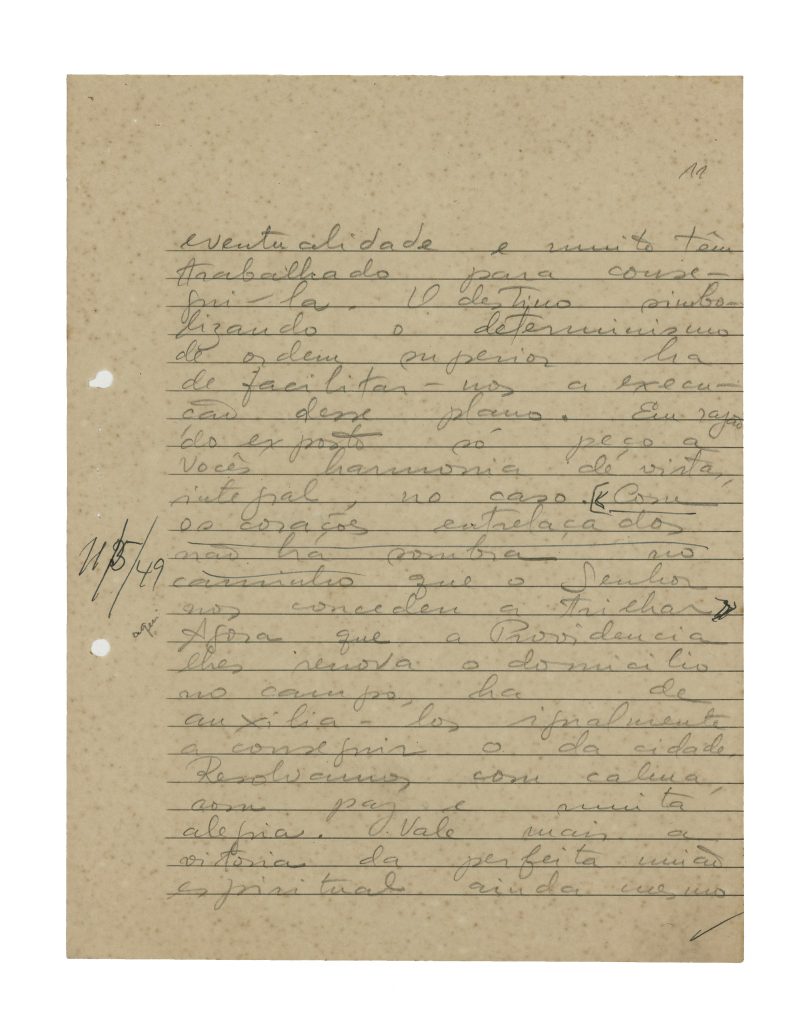 11
eventualidade e muito têm
trabalhado para conse-
gui-la. O destino simbo-
lizando o determinismo
de ordem superior ha
de facilitar-nos a execu-
ção desse plano. Em razão
do exposto só peço a
vocês harmonia de vista,
integral, no caso. [«Com
os corações entrelaçados
não há sombra no
11/5/49
caminho que o Senhor
nos concedeu a trilhar»
aqui
Agora que a Providencia
lhes renova o domicilio
no campo, ha de
auxilia-los igualmente
a conseguir o da cidade.
Resolvamos com calma,
com paz e muita
alegria. Vale mais a
vitoria da perfeita união
espiritual ainda mesmo